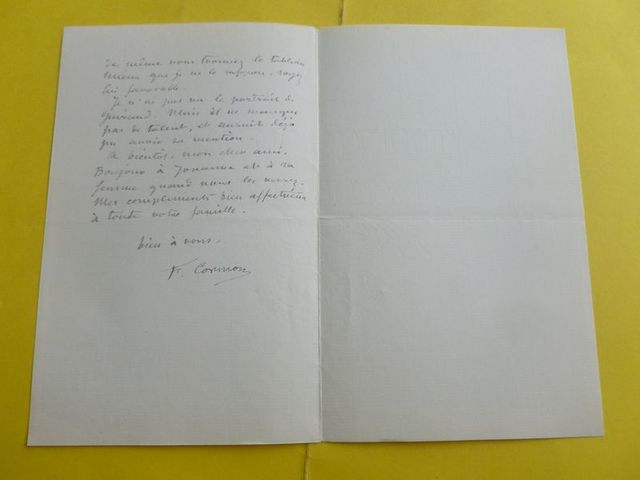 de même vous trouvez le tableau
mieux que je ne le suppose, soyez
lui favorable.
Je n'ai pas vu le portrait de
Mais il ne manque
pas de talent, et aurait déjà
pu avoir sa mention.
A bientôt, mon cher ami.
Bonjour à et à sa
femme quand vous les verrez.
Mes compliments bien affectueux
à toute votre famille.
bien à vous.
F. Cormon